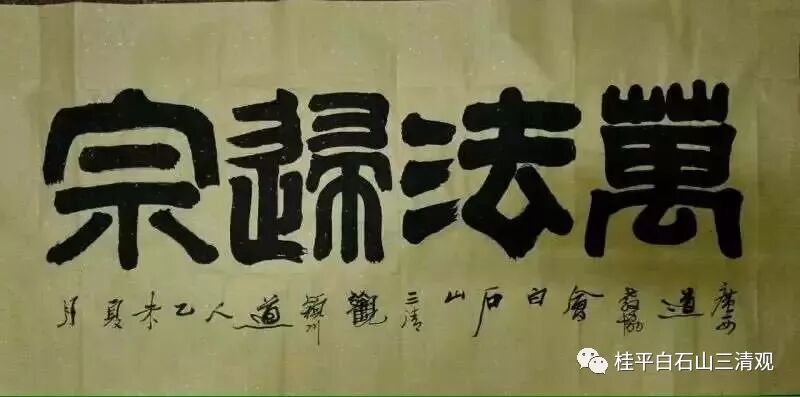 萬法歸宗
廣西道教協會白石山三清觀穎川道人乙未夏月
桂平白石山三清观